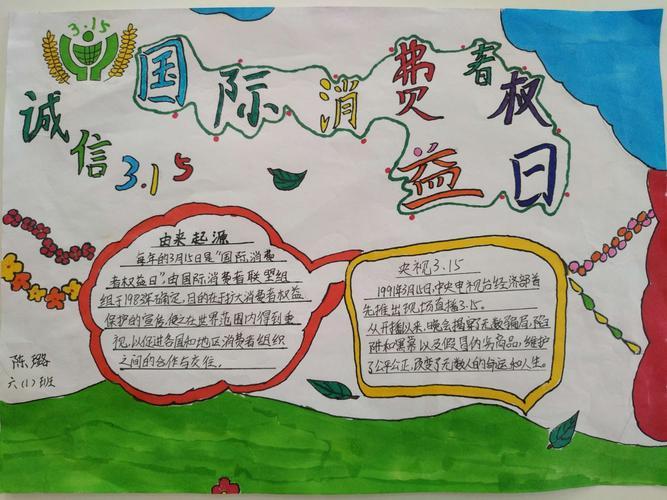 3.15
国际消费者权益日
诚信3.15
由来起源
每年的3月15日是“国际消费
者权益日”,由国际消费者联盟组
织于1983年确定,目的在于扩大消费者权益
保护的宣传,使之在世界范围内得到重
视,以促进各国和地区消费者组织
之间的合作与交往。
央视3.15
1991年3月15日,中央电视台经济部首
先推出现场直播3.15。
从开播以来,晚会揭穿了无数骗局,陷
阱和黑幕以及假冒伪劣商品,维护
了公平公正,改变了无数人的命运和人生。
陈璐
六(1)班